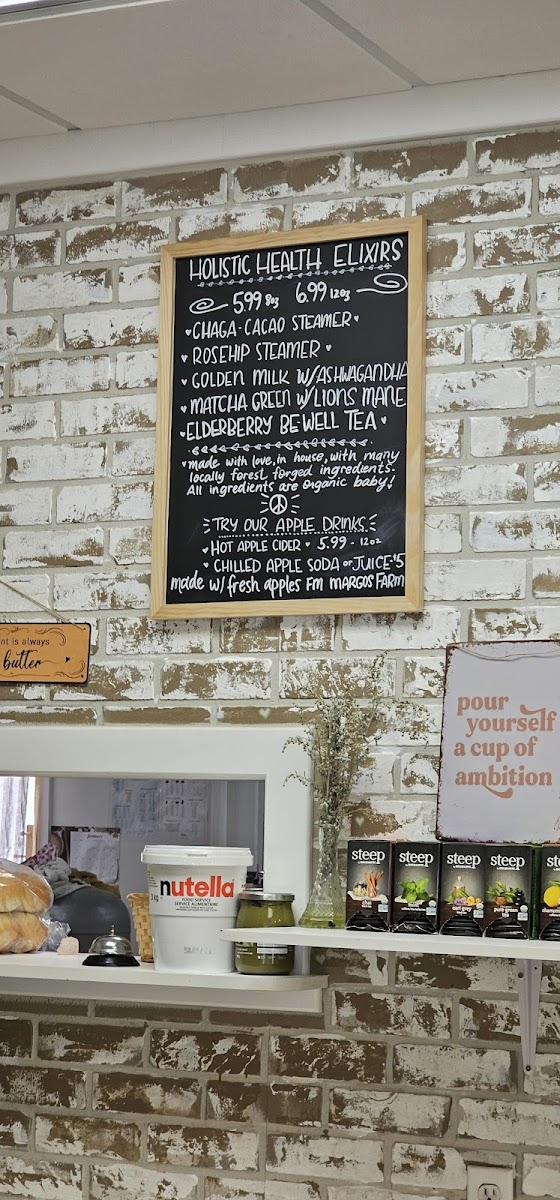 HOLISTIC HEALTH ELIXIRS
5.99 8oz 6.99 12oz
CHAGA-CACAO STEAMER
ROSEHIP STEAMER
GOLDEN MILK W/ASHWAGANDHA
MATCHA GREEN W/LIONS MANE
ELDERBERRY BE WELL TEA
made with love, in house, with many
locally forest forged ingredients.
All ingredients are organic baby!
TRY OUR APPLE DRINKS.
HOT APPLE CIDER 5.99 - 12oz
CHILLED APPLE SODA or JUICE $5
made w/ fresh apples Fm MARGOS FARM
nt is always
butter
pour
yourself
a cup of
ambition
nutella
FOOD SERVICE
SERVICE ALIMENTAIRE
steep
steep
steep
steep
pure green